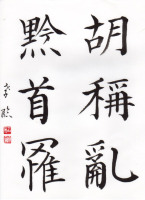 胡稱亂
黔首罹